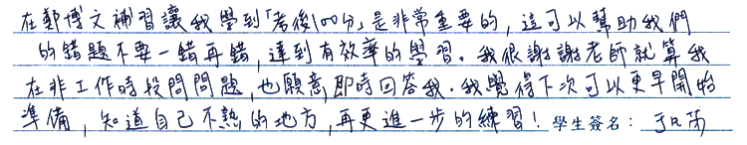 在鄭博文補習讓我學到「考後100分」是非常重要的,這可以幫助我們
的錯題不要一錯再錯,達到有效率的學習。我很謝謝老師就算我
在非工作時段問問題,也願意即時回答我。我覺得下次可以更早開始
準備,知道自己不熟的地方,再更進一步的練習!學生簽名: